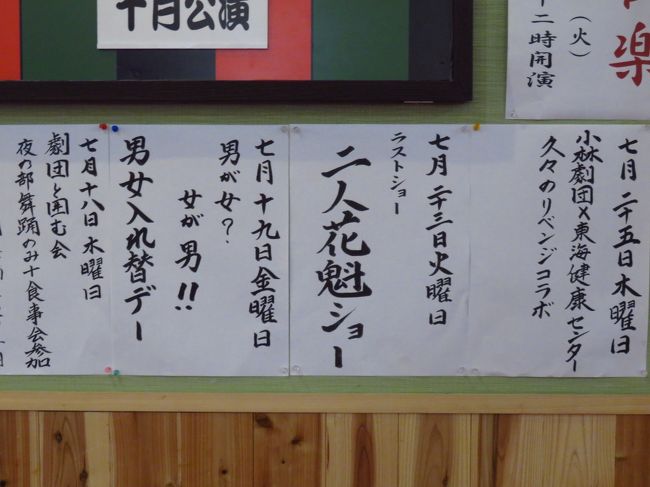 十月公演
楽
（火）
十二時開演
七月二十五日木曜日
小林劇団×東海健康センター
久々のリベンジコラボ
七月二十三日火曜日
ラストショー
二人花魁ショー
七月十九日金曜日
男が女？
女が男！！
男女入れ替デー
七月十八日木曜日
劇団と囲む会
夜の部舞踊のみ＋食事会参加